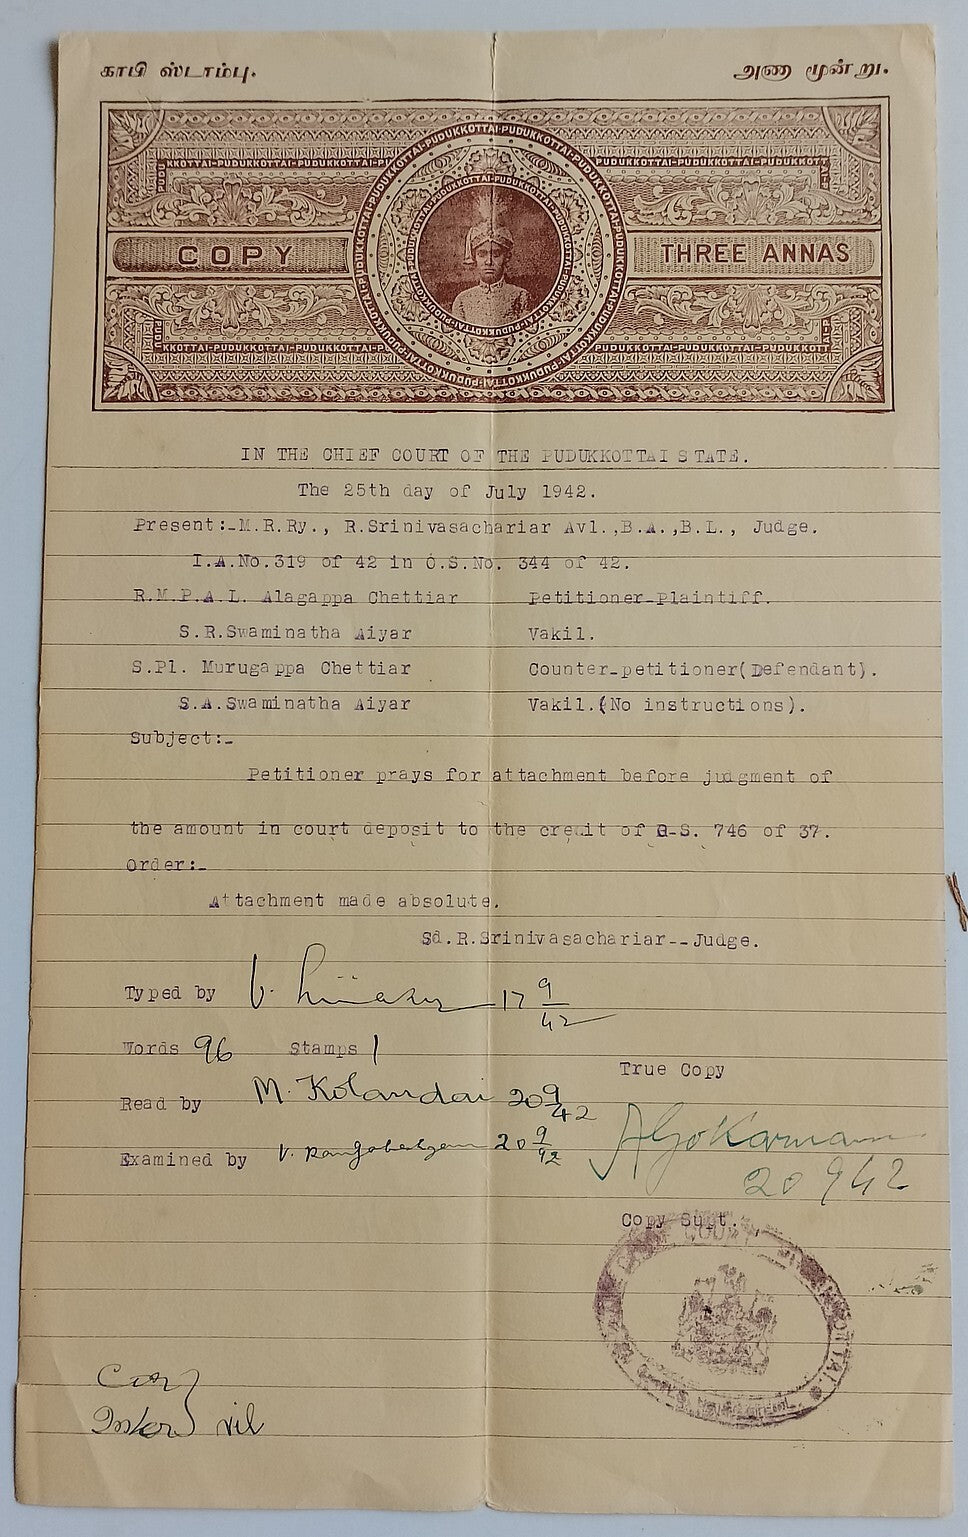 காபி ஸ்டாம்பு. அணா மூன்று.
PUDUKKOTTAI-PUDUKKOTTAI-PUDUKKOTTAI
COPY THREE ANNAS
IN THE CHIEF COURT OF THE PUDUKKOTTAI STATE.
The 25th day of July 1942.
Present:-M.R.Ry., R.Srinivasachariar Avl.,B.A.,B.L., Judge.
I.A.No.319 of 42 in O.S.No. 344 of 42.
R.M.P.A.L. Alagappa Chettiar Petitioner-Plaintiff.
S.R.Swaminatha Aiyar Vakil.
S.Pl. Murugappa Chettiar Counter-petitioner(Defendant).
S.A.Swaminatha Aiyar Vakil.(No instructions).
Subject:-
Petitioner prays for attachment before judgment of
the amount in court deposit to the credit of O-S. 746 of 37.
Order:-
Attachment made absolute.
Sd.R.Srinivasachariar--Judge.
Typed by V. 17 9/42
Words 96 Stamps 1
True Copy
Read by M. Kolandai 20 9/42
Examined by V. 20 9/42
20 9 42
Copy Supt.
COURT
nil